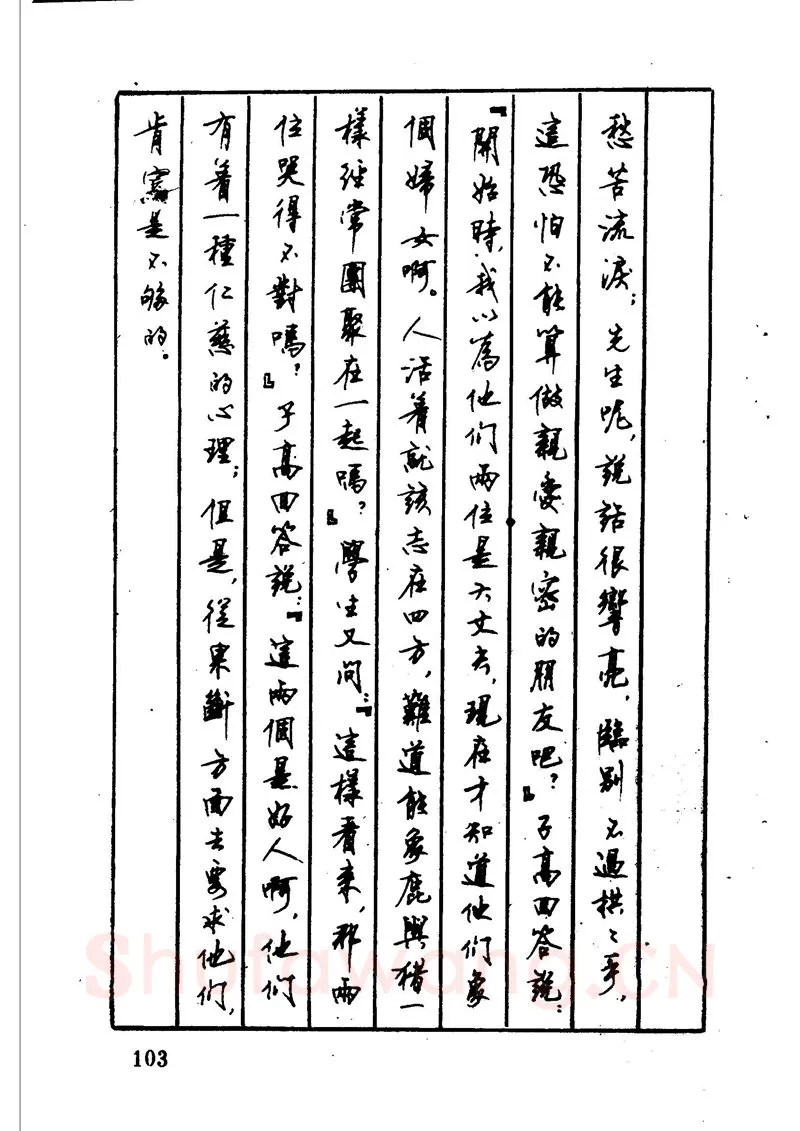 愁苦流淚；先生呢，說話很響亮，臨別不過拱々手，
這恐怕不能算做親愛親密的朋友吧？』子高回答說：
『開始時，我以為他们兩位是大丈夫，現在才知道他们象
個婦女啊。人活着就該志在四方，難道能象鹿與猪一
樣經常團聚在一起嗎？』學生又问：『這樣看来，那兩
位哭得不對嗎？』子高回答説：『這兩個是好人啊，他们
有着一種仁慈的心理；但是，從果斷方面去要求他们，
肯定是不够的。
103
Shufawang.CN